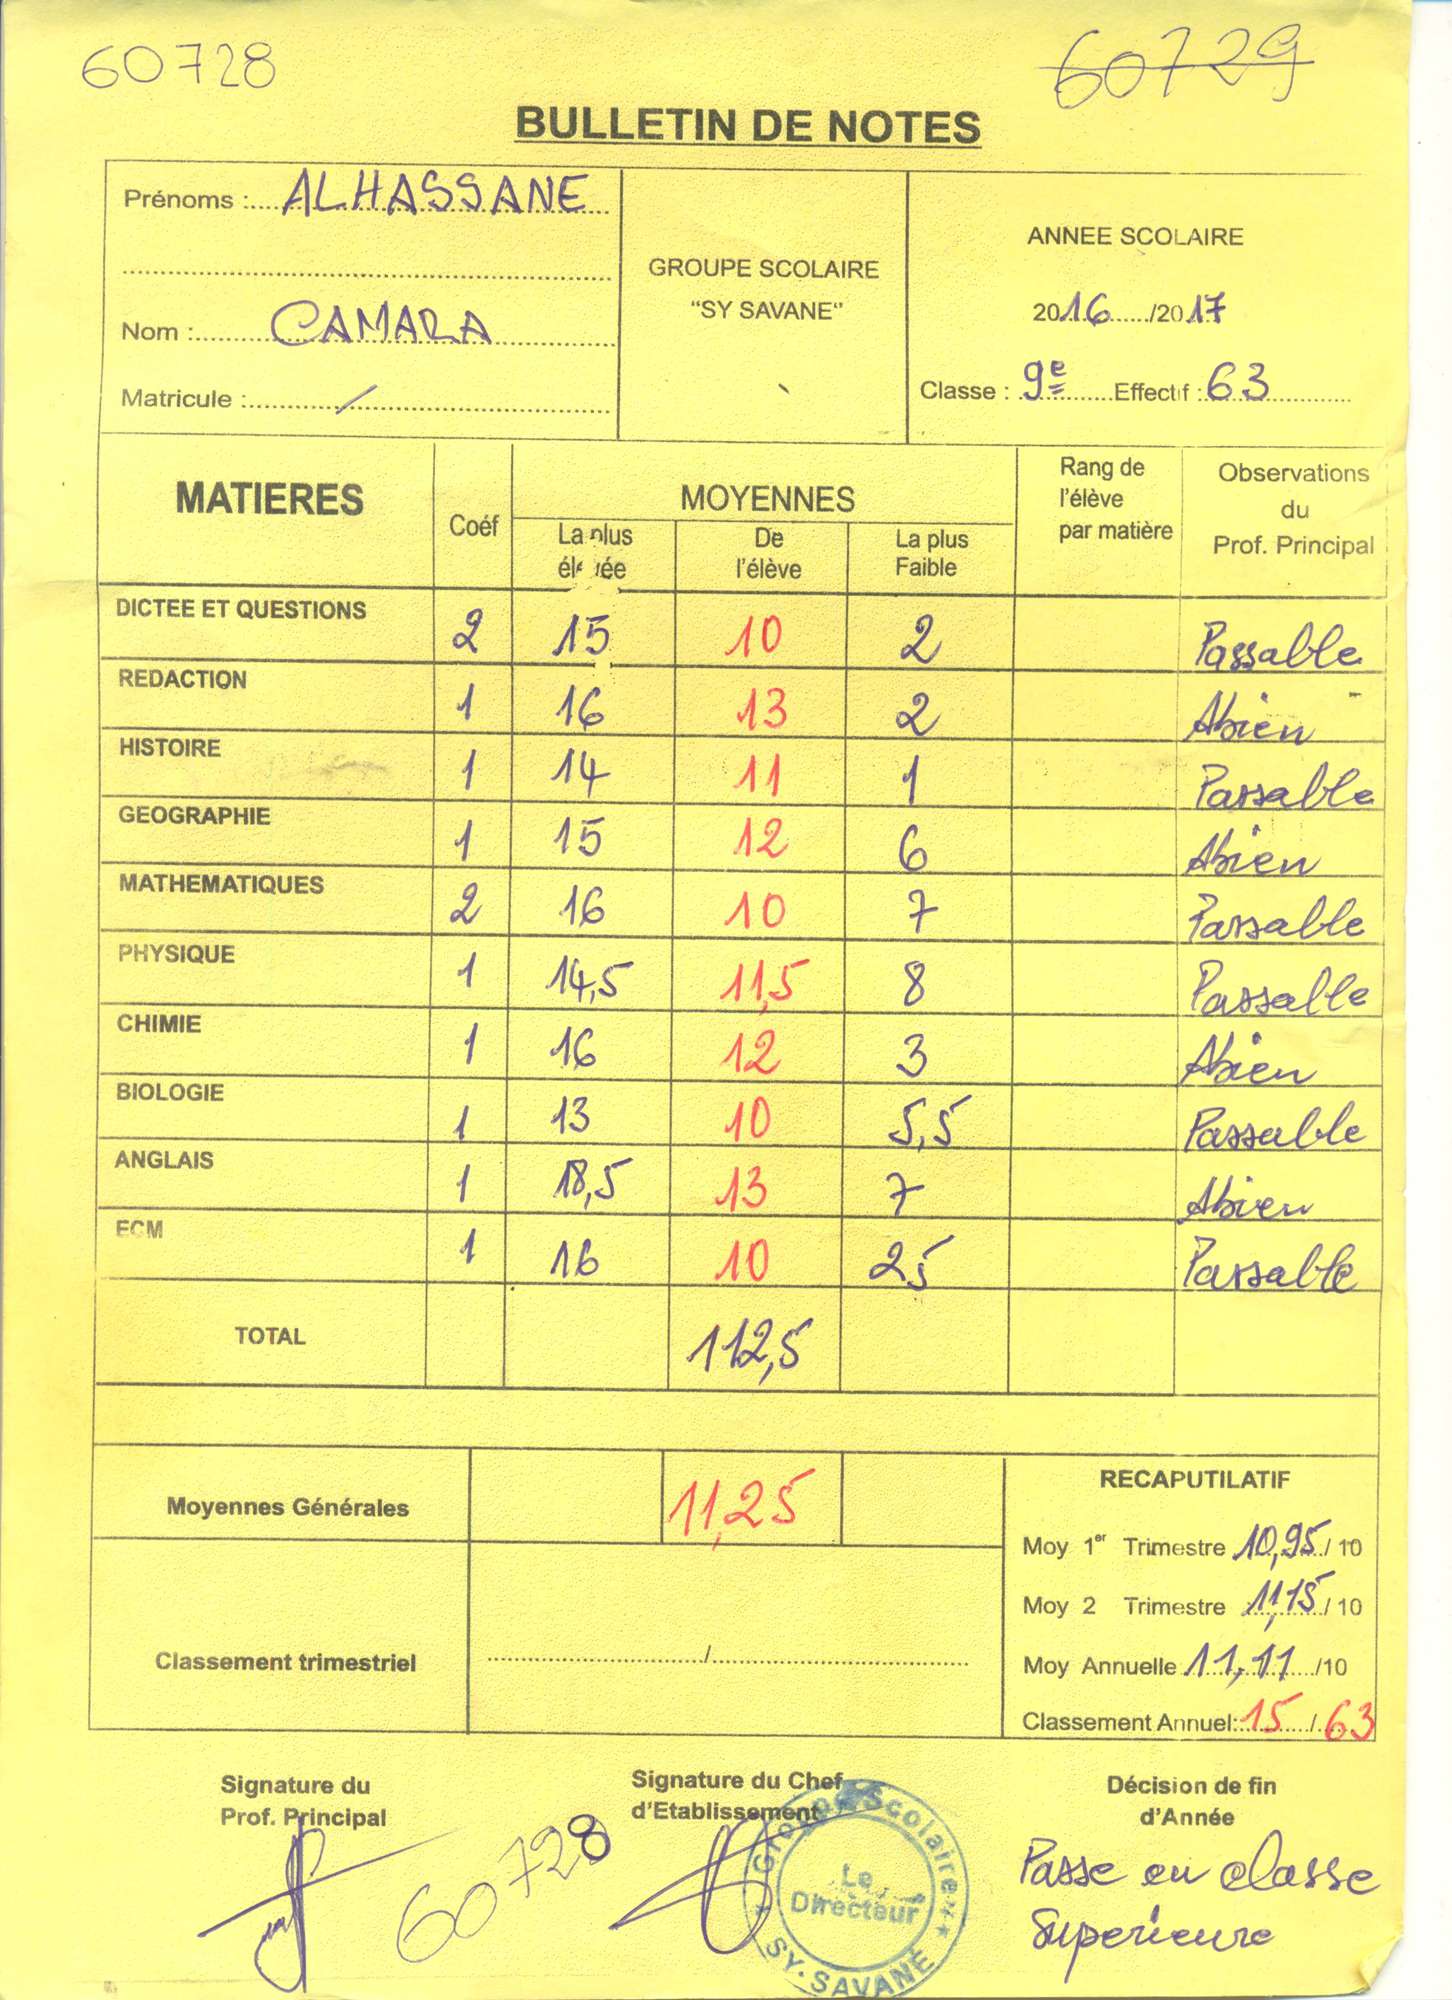 60728
60729
BULLETIN DE NOTES
Prénoms : ALHASSANE
Nom : CAMARA
Matricule : /
GROUPE SCOLAIRE
"SY SAVANE"
ANNEE SCOLAIRE
2016/2017
Classe : 9e Effectif : 63
MATIERES Coéf MOYENNES Rang de l'élève par matière Observations du Prof. Principal
La plus élevée De l'élève La plus Faible
DICTEE ET QUESTIONS 2 15 10 2 Passable
REDACTION 1 16 13 2 Abien
HISTOIRE 1 14 11 1 Passable
GEOGRAPHIE 1 15 12 6 Abien
MATHEMATIQUES 2 16 10 7 Passable
PHYSIQUE 1 14,5 11,5 8 Passable
CHIMIE 1 16 12 3 Abien
BIOLOGIE 1 13 10 5,5 Passable
ANGLAIS 1 18,5 13 7 Abien
ECM 1 16 10 25 Passable
TOTAL 112,5
Moyennes Générales 11,25
Classement trimestriel /
RECAPUTILATIF
Moy 1er Trimestre 10,95/10
Moy 2 Trimestre 11,15/10
Moy Annuelle 11,11/10
Classement Annuel: 15/63
Signature du
Prof. Principal
60728
Signature du Chef
d'Etablissement
Groupe Scolaire
Le
Directeur
SY.SAVANE
Décision de fin
d'Année
Passe en classe
Superieure